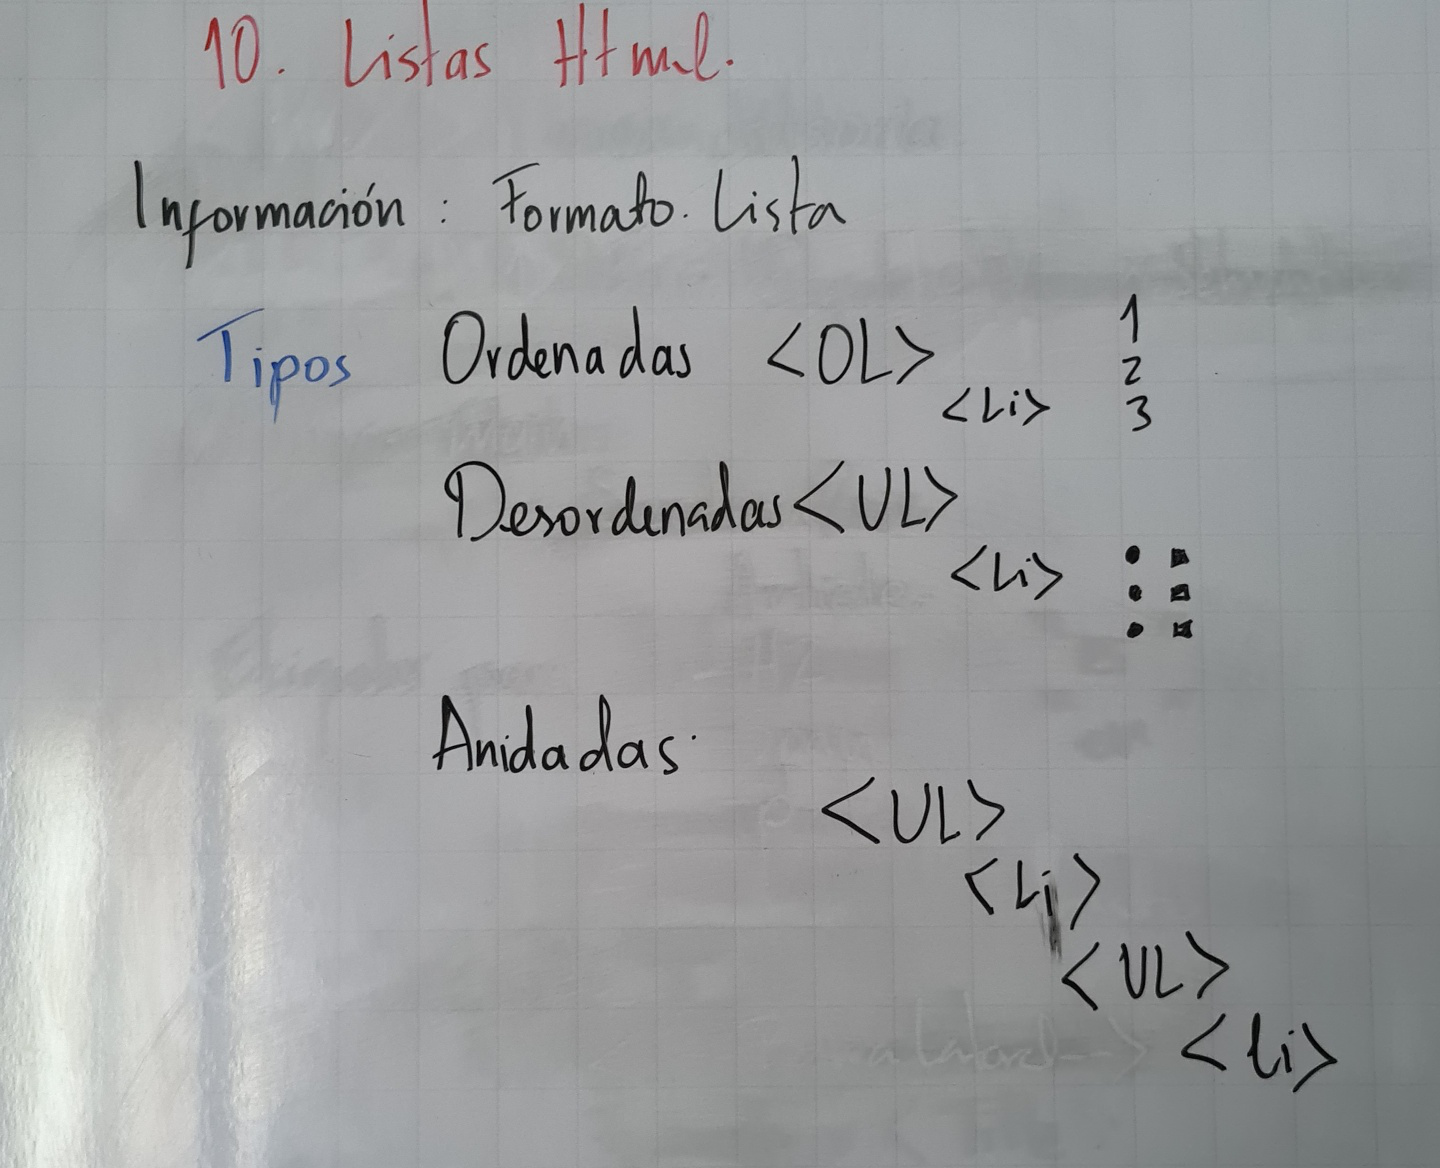 10. Listas Html.
Información : Formato. Lista
Tipos Ordenadas <OL> 1
2
<Li> 3
Desordenadas <UL>
<Li>
Anidadas.
<UL>
<Li>
<UL>
<li>